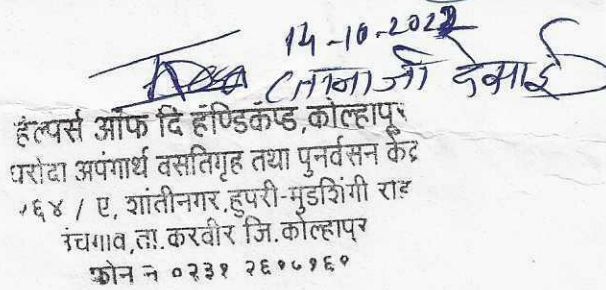 14-10-2022
(तानाजी देसाई
हेल्पर्स ऑफ दि हॅण्डिकॅप्ड,कोल्हापूर
घरोंदा अपंगार्थ वसतिगृह तथा पुनर्वसन केंद्र
१६४ / ए, शांतीनगर,हुपरी-मुडशिंगी रोड
उंचगाव,ता.करवीर जि.कोल्हापूर
फोन न ०२३१